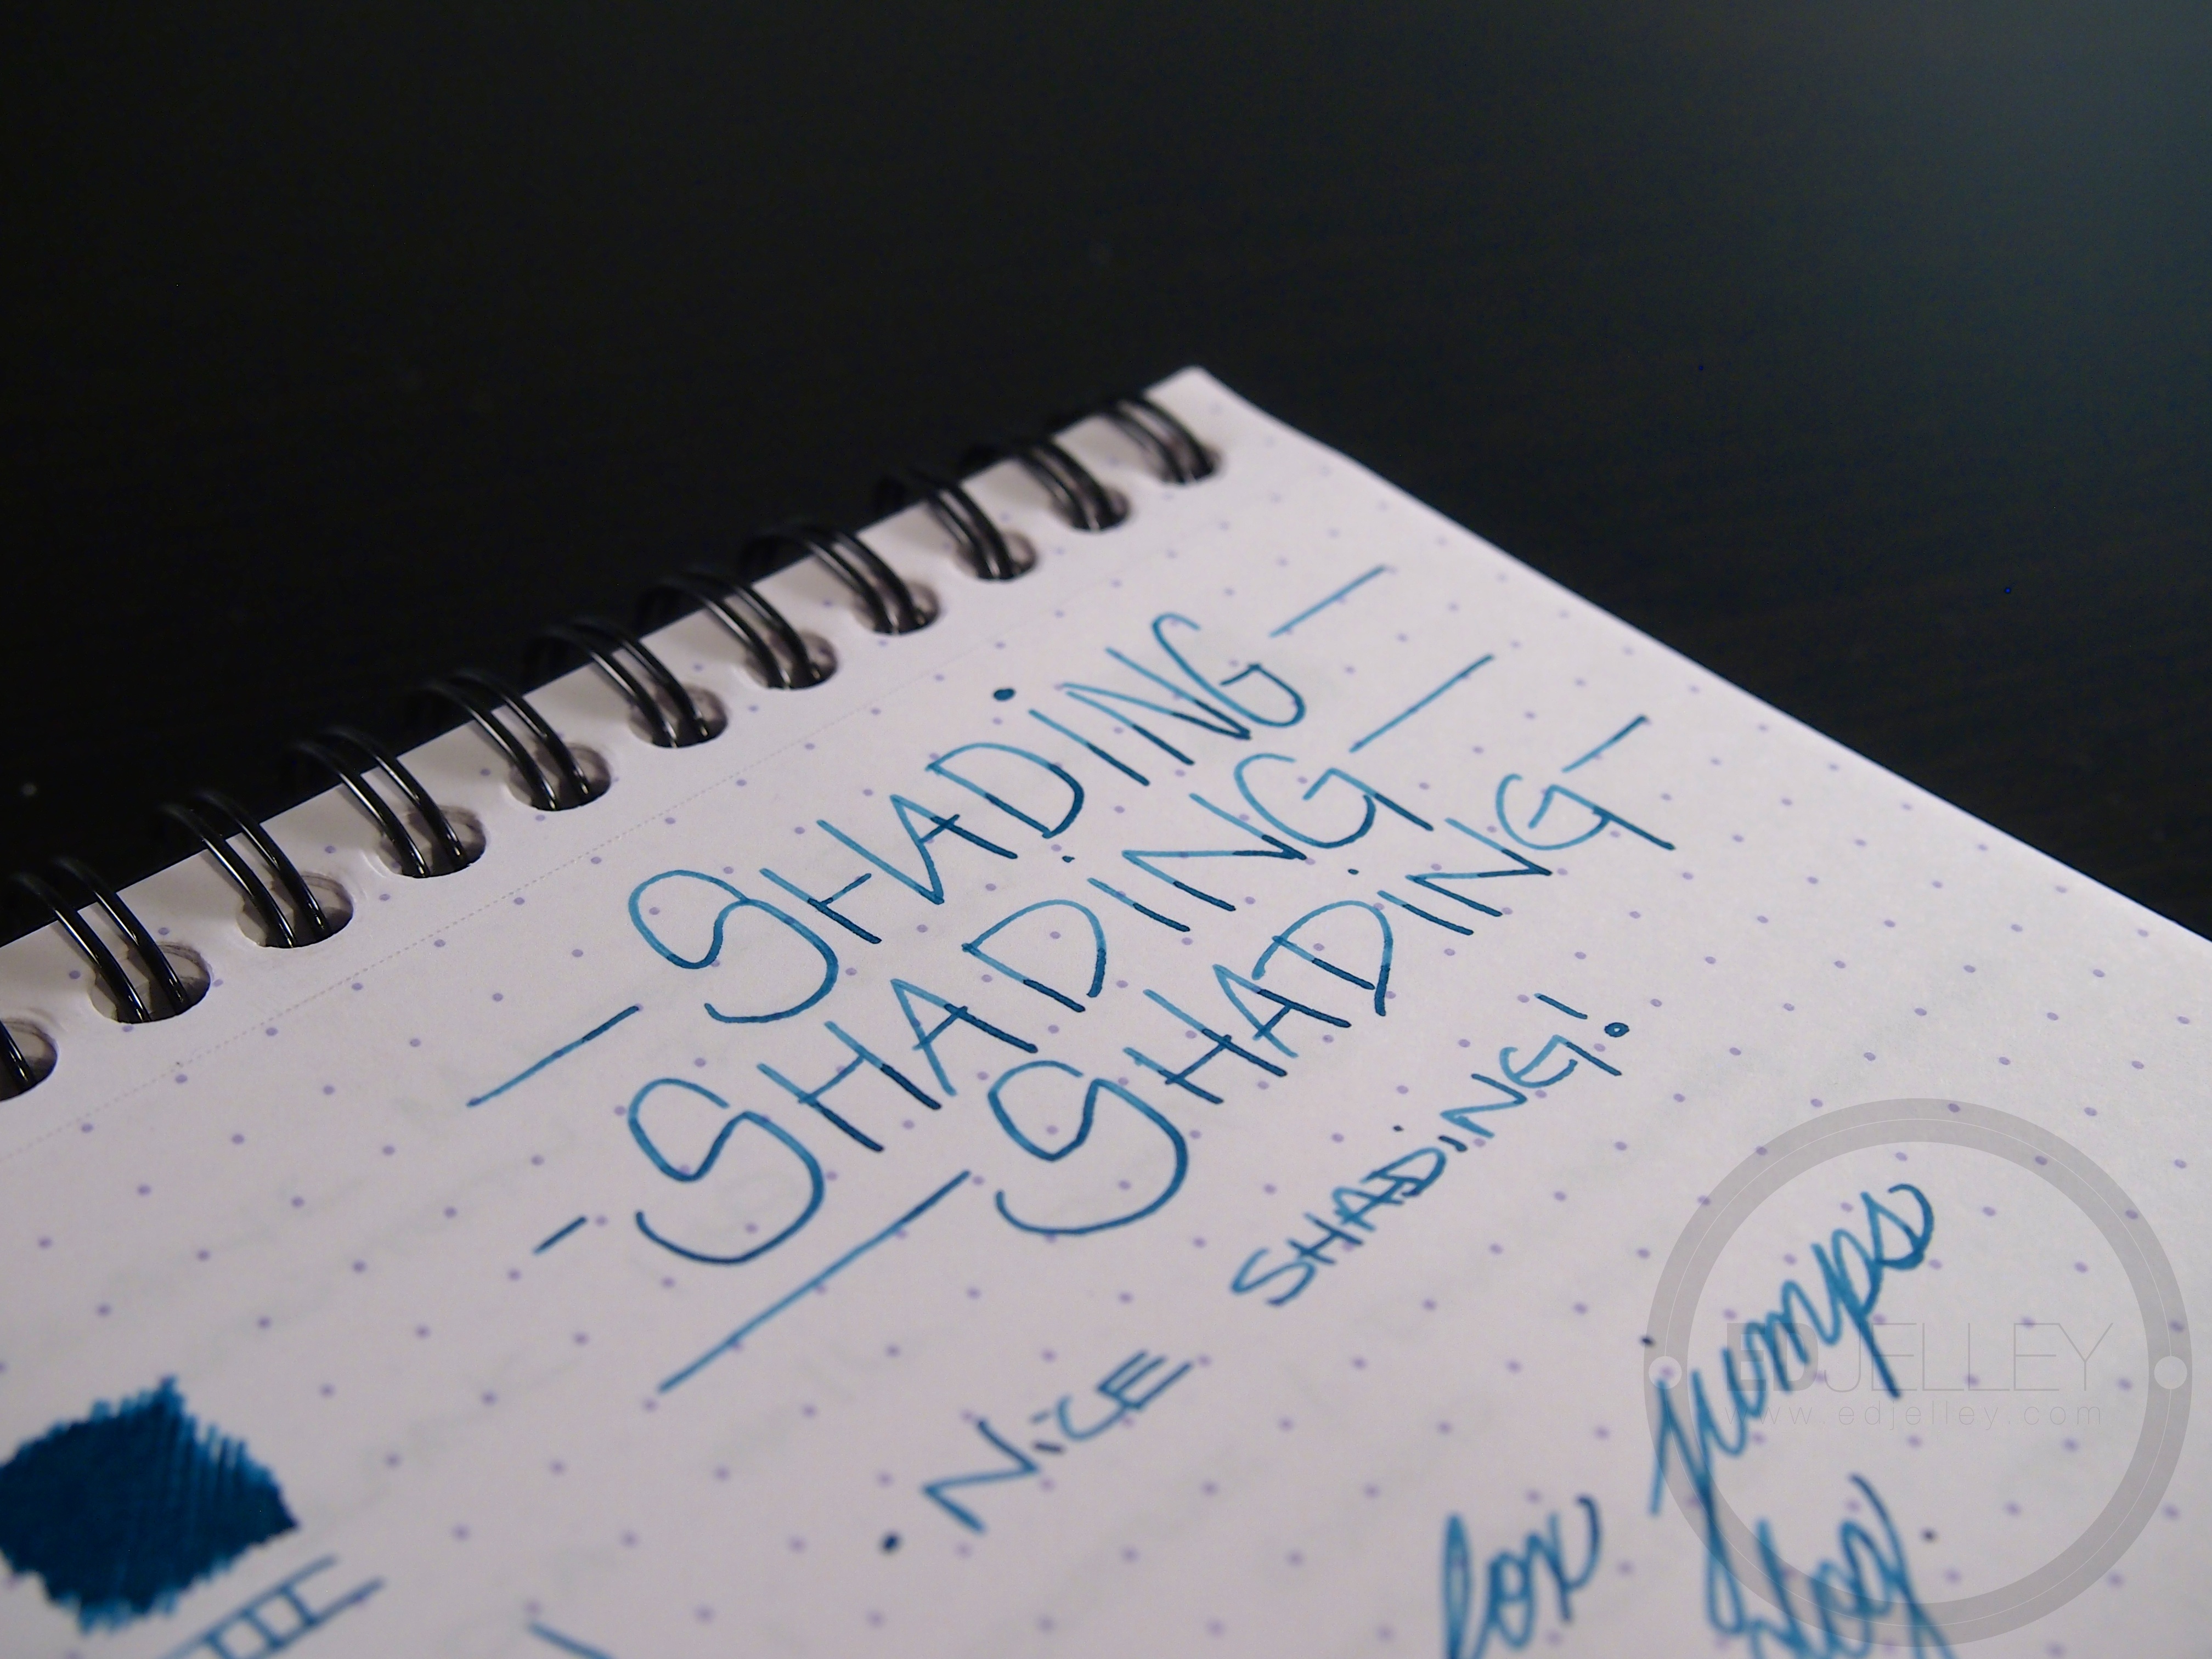 — SHADiNG —
- SHADiNG —
— SHADiNG —
• NiCE SHADiNG!
fox jumps
dog.
EDJELLEY
www.edjelley.com